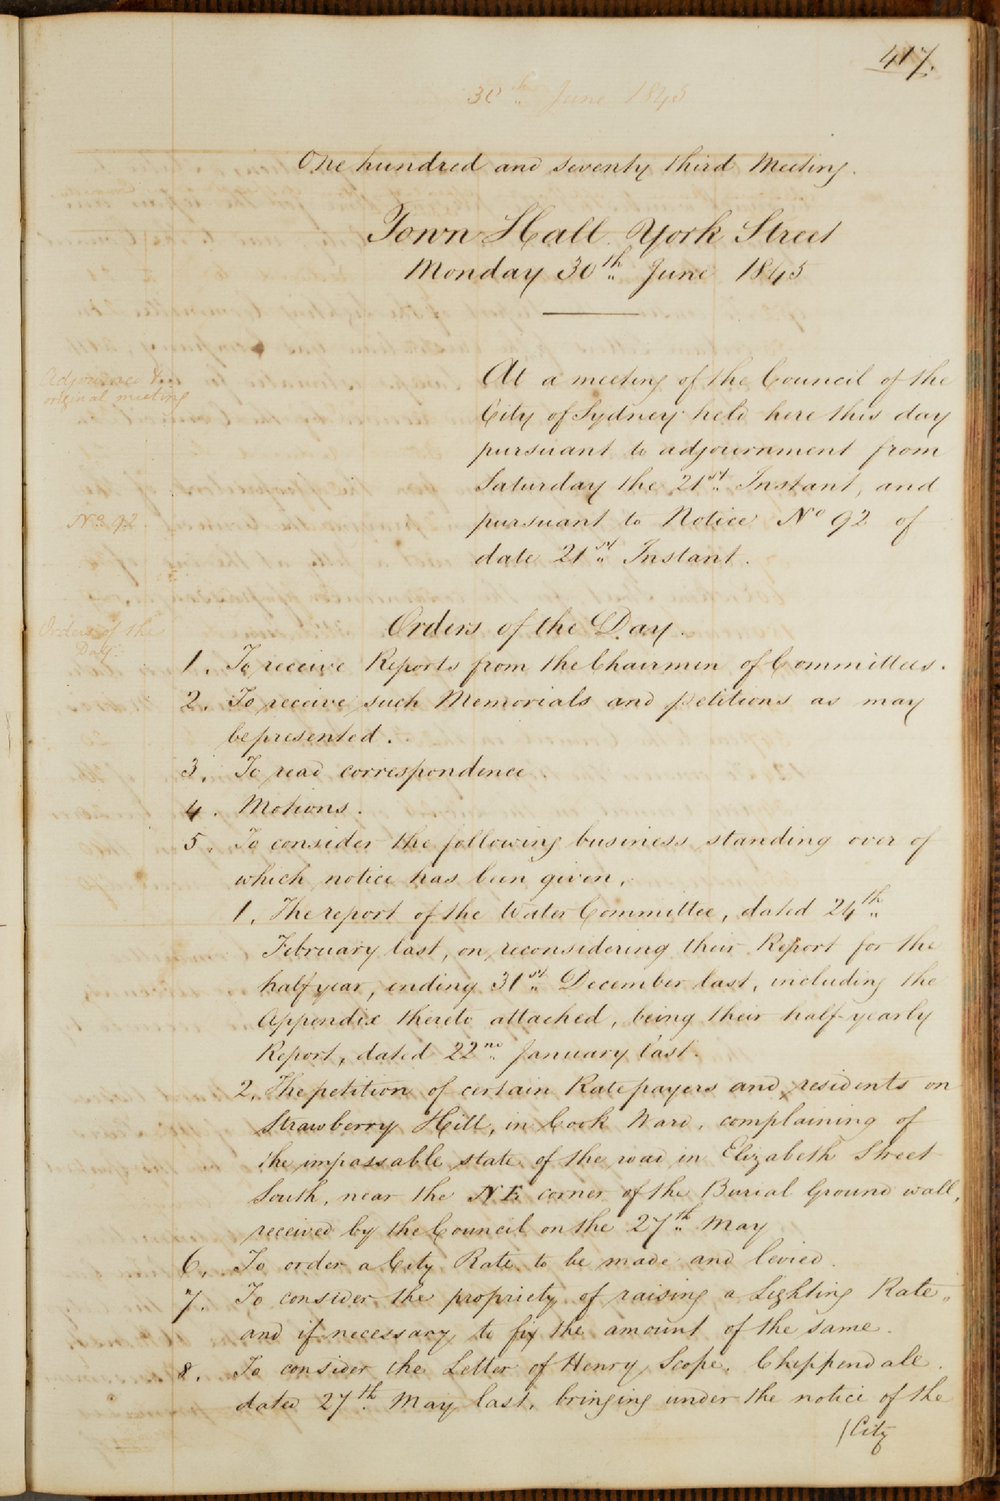 417.
30th June 1845
One hundred and seventy third Meeting.
Town Hall. York Street
Monday 30th June 1845
Adjourned &
original meeting
At a meeting of the Council of the
City of Sydney held here this day
pursuant to adjournment from
Saturday the 21st Instant, and
No. 92.
pursuant to Notice No 92 of
date 21st Instant.
Orders of the
Day.
Orders of the Day.
1. To receive Reports from the Chairmen of Committees.
2. To receive such Memorials and petitions as may
be presented.
3. To read correspondence
4. Motions.
5. To consider the following business standing over of
which notice has been given,
1. The report of the Water Committee, dated 24th
February last, on reconsidering their Report for the
half year, ending 31st December last, including the
Appendix thereto attached, being their half-yearly
Report, dated 22nd January last.
2. The petition of certain Ratepayers and residents on
Strawberry Hill, in Cook Ward, complaining of
the impassable state of the road in Elizabeth Street
South, near the N.E. corner of the Burial Ground wall,
received by the Council on the 27th May
6. To order a City Rate to be made and levied.
7. To consider the propriety of raising a Lighting Rate,
and if necessary to fix the amount of the same.
8. To consider the Letter of Henry Scope. Chippendale.
dated 27th May last, bringing under the notice of the
/City